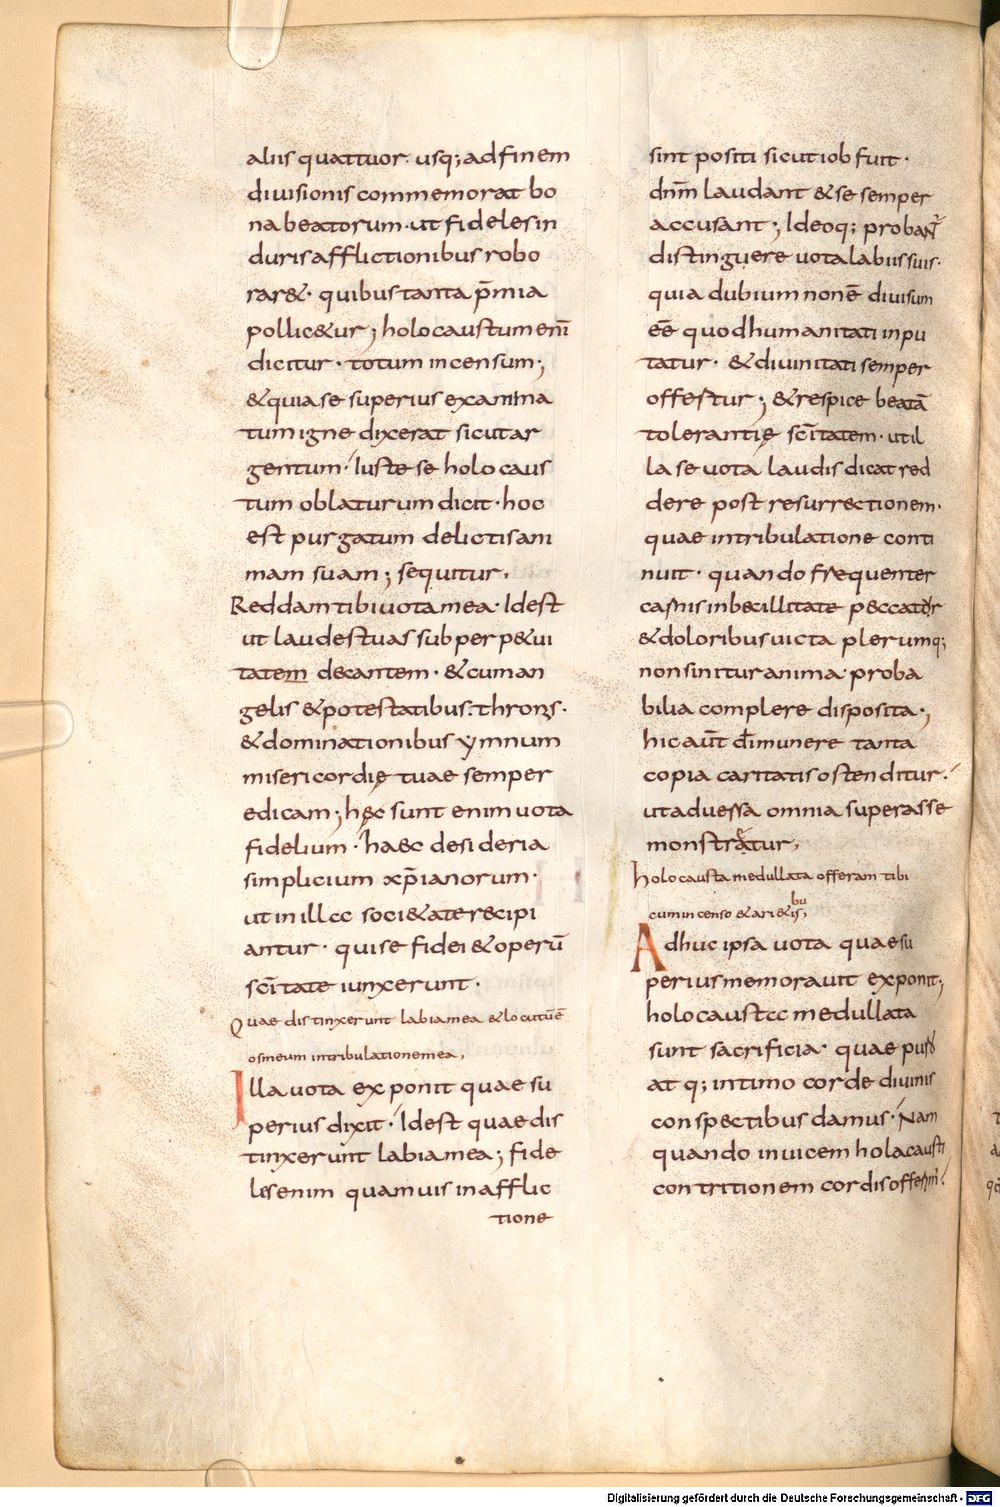 aliis quattuor. usq; ad finem
diuisionis commemorat bo
na beatorum. ut fideles in
duris afflictionibus robo
rar&. quibus tanta p̄mia
pollic&ur; holocaustum enī
dicitur. totum incensum;
& quia se superius examina
tum igne dixerat sicut ar
gentum. Iuste se holocaus
tum oblaturum dicit. hoc
est purgatum delictis ani
mam suam; sequitur.
Reddam tibi uota mea. Idest
ut laudes tuas sub perp&ui
tatem decantem. & cum an
gelis & potestatibus. thronis.
& dominationibus ymnum
misericordię tuae semper
edicam; hęc sunt enim uota
fidelium. haec desideria
simplicium xp̄ianorum.
ut in illa soci&ate recipi
antur. qui se fidei & operū
sc̄itate iunxerunt.
Quae distinxerunt labia mea & locutū ē
os meum in tribulatione mea,
Illa uota exponit quae su
perius dixit. Idest quae dis
tinxerunt labia mea; fide
les enim quamuis in afflic
tione
sint positi sicut iob fuit.
dn̄m laudant & se semper
accusant; Ideoq; probant̄
distinguere uota labiis suis.
quia dubium non ē diuisum
eē quod humanitati inpu
tatur. & diuinitati semper
offertur; & respice beatā
tolerantię sc̄itatem. ut il
la se uota laudis dicat red
dere post resurrectionem.
quae in tribulatione conti
nuit. quando frequenter
carnis inbecillitate peccator
& doloribus uicta plerumq;
non sinitur anima proba
bilia complere disposita;
hic aūt de munere tanta
copia caritatis ostenditur.
ut aduersa omnia superasse
monstretur,
holocausta medullata offeram tibi
cum incenso & ari&ibus,
Adhuc ipsa uota quae su
perius memorauit exponit;
holocausta medullata
sunt sacrificia. quae puro
atq; intimo corde diuinis
conspectibus damus. Nam
quando in uicem holacausti
contritionem cordis offerim̄.
Digitalisierung gefördert durch die Deutsche Forschungsgemeinschaft - DFG